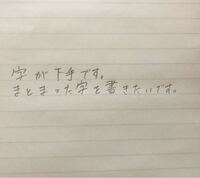 字が下手です。
まとまった字を書きたいです。